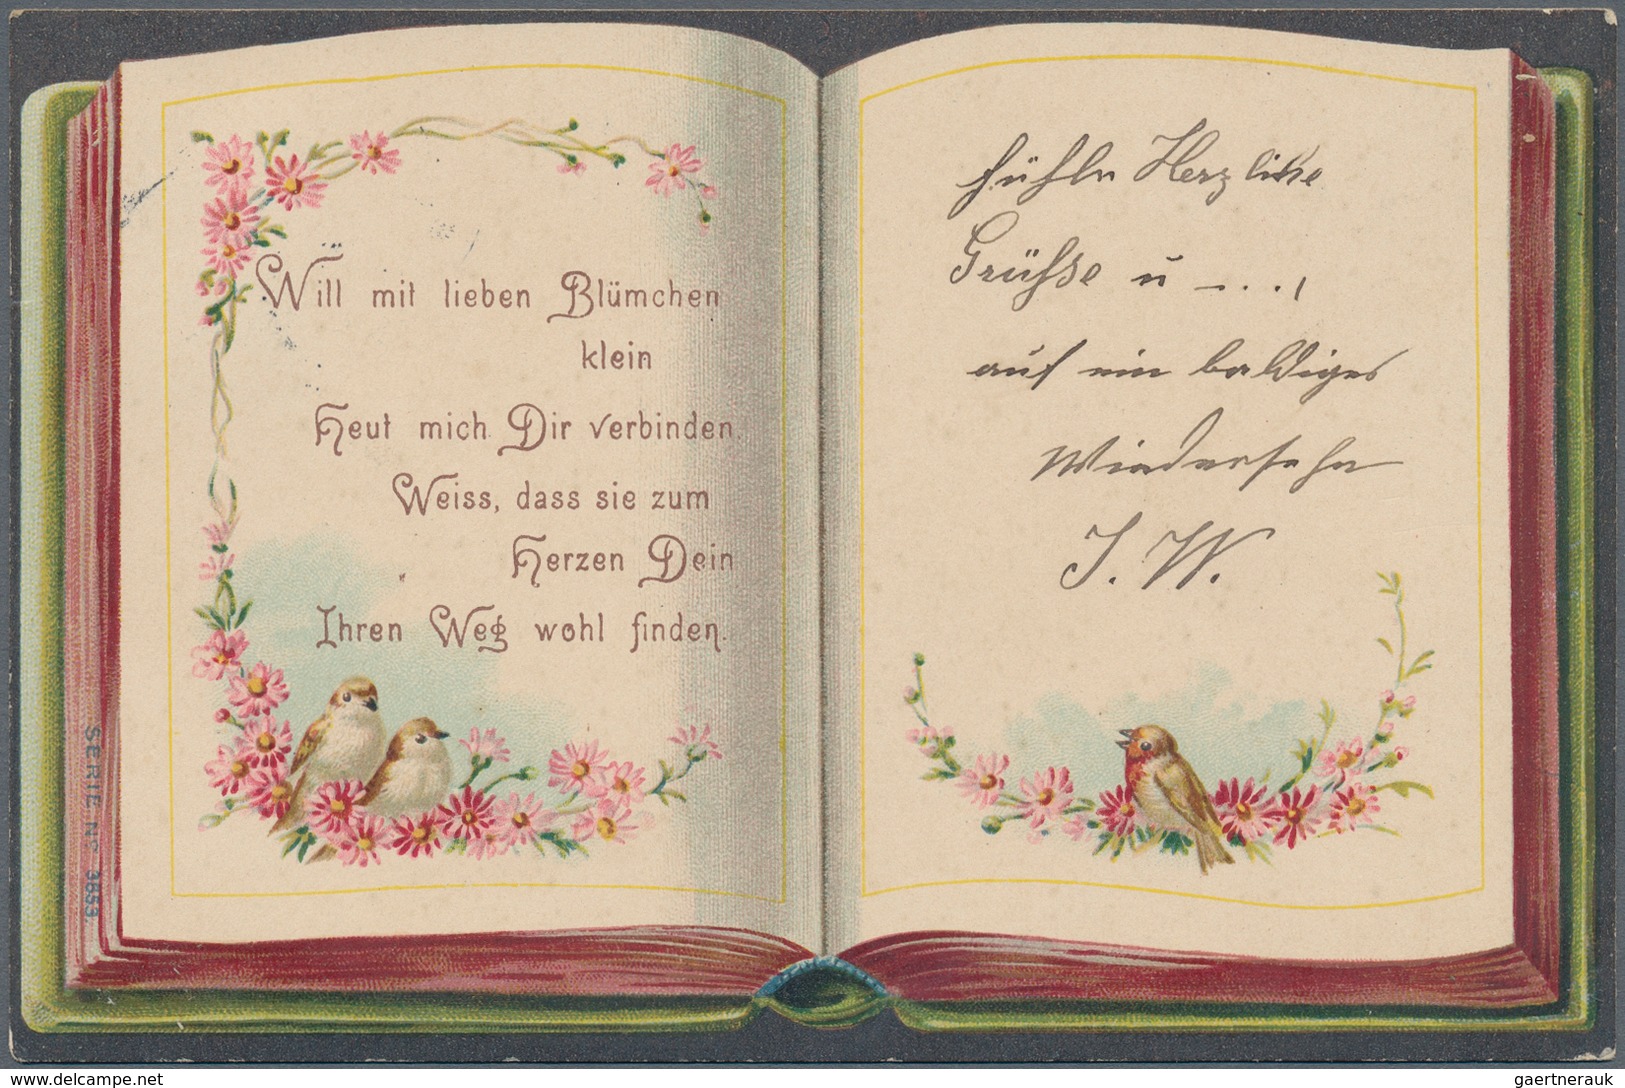 Will mit lieben Blümchen
klein
Heut mich Dir verbinden.
Weiss, dass sie zum
Herzen Dein
Ihren Weg wohl finden.
Herzliche
Grüsse u - . . . ,
auf ein baldiges
Wiedersehn
J. W.
SERIE No 3653.
gaertnerauk